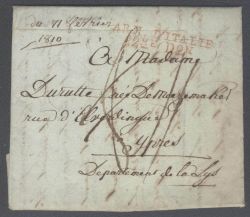 du 11 février
1810
ARM. D'ITALIE
A Madame
Durutte née De Meezemaker
rue d'
Ypres
Département de la Lys